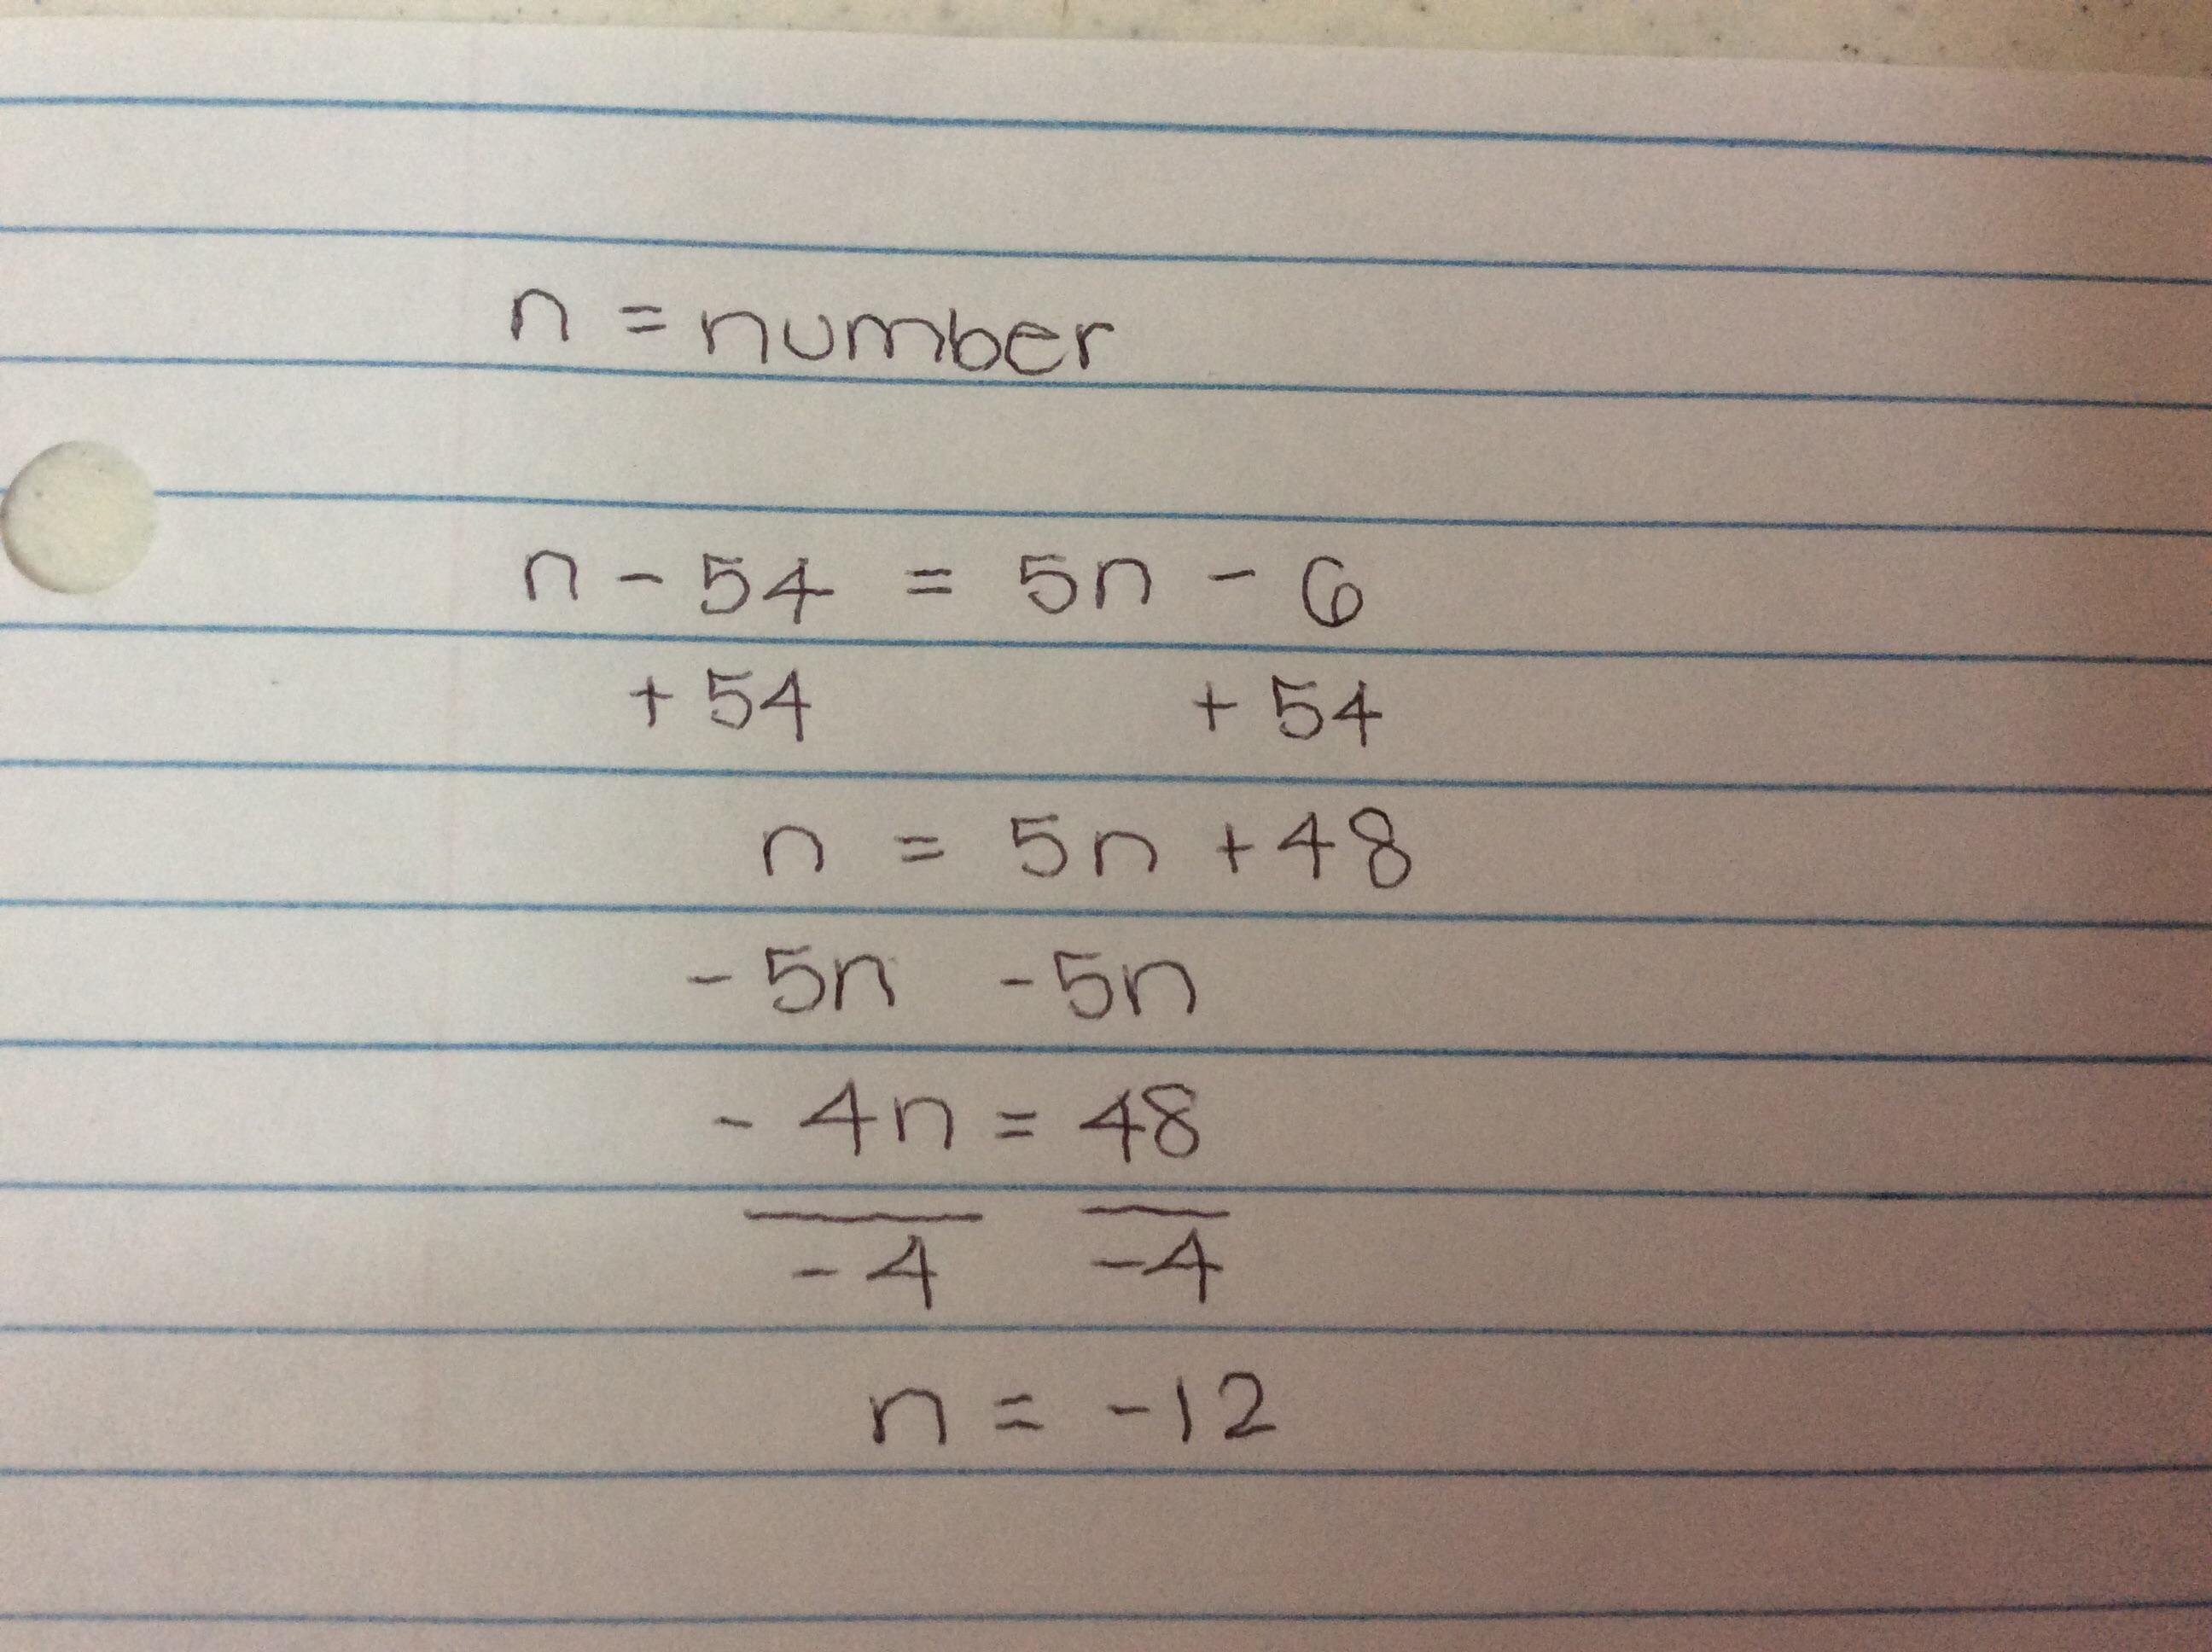 n = number
n - 54 = 5n - 6
+ 54 + 54
n = 5n + 48
- 5n - 5n
- 4n = 48
- 4 - 4
n = - 12